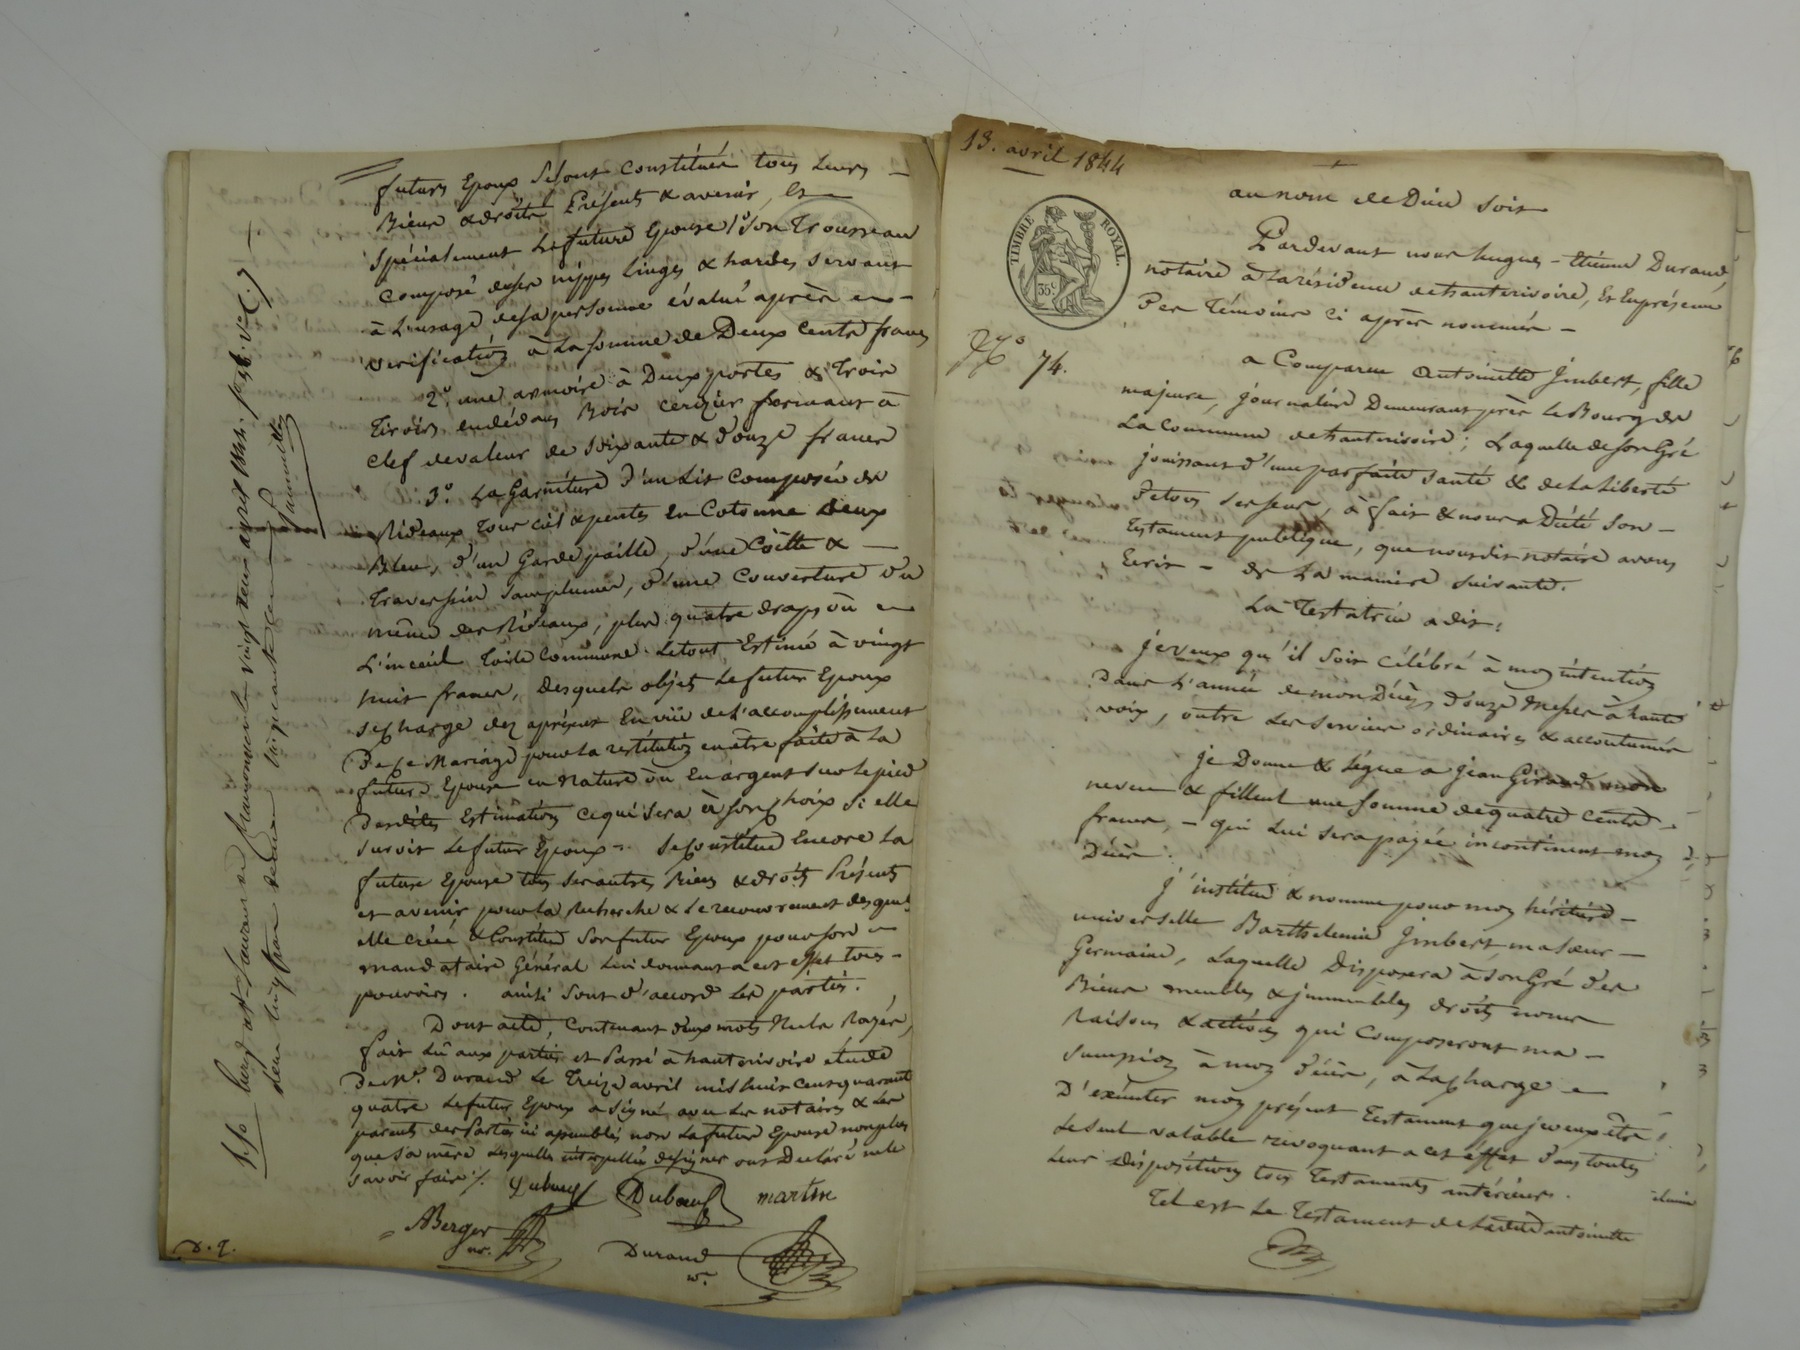 futurs Epoux se sont constitués tous leurs
Biens & droits Présents & avenir, Et
spécialement la future Epouse 1° son Trousseau
composé de ses nippes linges & hardes servant
à l'usage de sa personne évalué après
vérification à la somme de Deux cents francs
2° une armoire à Deux portes & Trois
Tiroirs en dédans Bois cerizier fermant à
clef de valeur de soixante & douze francs
3° La Garniture d'un Lit composée de
Rideaux tour ciel & pentes En Cotonne Deux
Bleus, d'un Garde paille, d'une Coëtte &
traversin Sans plumes, d'une Couverture du
même des Rideaux, plus quatre draps ou
Linceuil toile commune. Le tout Estimé à vingt
huit francs, desquels objets le futur Epoux
se charge dez aprésent En vüe de l'accomplissement
De ce Mariage pour la restitution en être faite à la
future Epouse en Nature ou En argent sur le pied
Desdites Estimations ce qui sera à son choix si elle
survit le futur Epoux. Se Constitue Encore la
future Epouse tous ses autres Biens & droits Présents
et avenir pour la recherche & le recouvrement desquels
elle créé & Constitue son futur Epoux pour son
mandataire Général lui donnant a cet effet tous
pouvoirs. ainsi sont d'accord les parties.
Dont acte, Contenant deux mots Nuls Rayés,
fait Lû aux parties et Passé à hauterivoire étude
De Me. Durand Le Treize avril mil huit cent quarante
quatre le futur Epoux a Signé avec les notaires & les
parents des Parties ici assemblés non la future Epouse non plus
que sa mère lesquelles interpellées de signer ont Déclaré ne le
savoir faire /.
Dubœuf martin
ABerger
nre.
Durand
nre.
13. avril 1844
au nom de Dieu soit
TIMBRE ROYAL.
35c
Pardevant nous hugues - Etienne Durand,
notaire à la résidence de hauterivoire, Et En présence
Des Témoins ci après nommés -
No 74.
a Comparu Antoinette Imbert, fille
majeure, journalière Demeurant près le Bourg de
La Commune de hauterivoire; Laquelle de son Gré
jouissant d'une parfaite santé & de la Liberté
De tous ses sens, à fait & nous a Dicté Son -
Testament publique, que nous dit notaire avons
Ecrit - de La maniere suivante.
La Testatrice a dit:
je veux qu'il soit célébré à mon intention
Dans l'année de mon Décès, douze Messes à haute
voix, outre les services ordinaires & accoutumés
je Donne & Légue a jean Giraud mon
neveu & filleul une somme de quatre cents
francs, - qui Lui sera payée incontinent mon
Décès.
j'institue & nomme pour mon héritière -
universelle Barthelemie Imbert, ma Sœur -
Germaine, Laquelle Disposera à son Gré des
Biens meubles & immeubles droits noms
Raisons & actions qui Composeront ma -
succession à mon décès, à la charge
D'exécuter mon présent Testament que je veux être
Le seul valable révoquant a cet effet dans toutes
leurs dispositions tous Testaments antérieurs.
Tel est Le Testament de Ladite antoinette